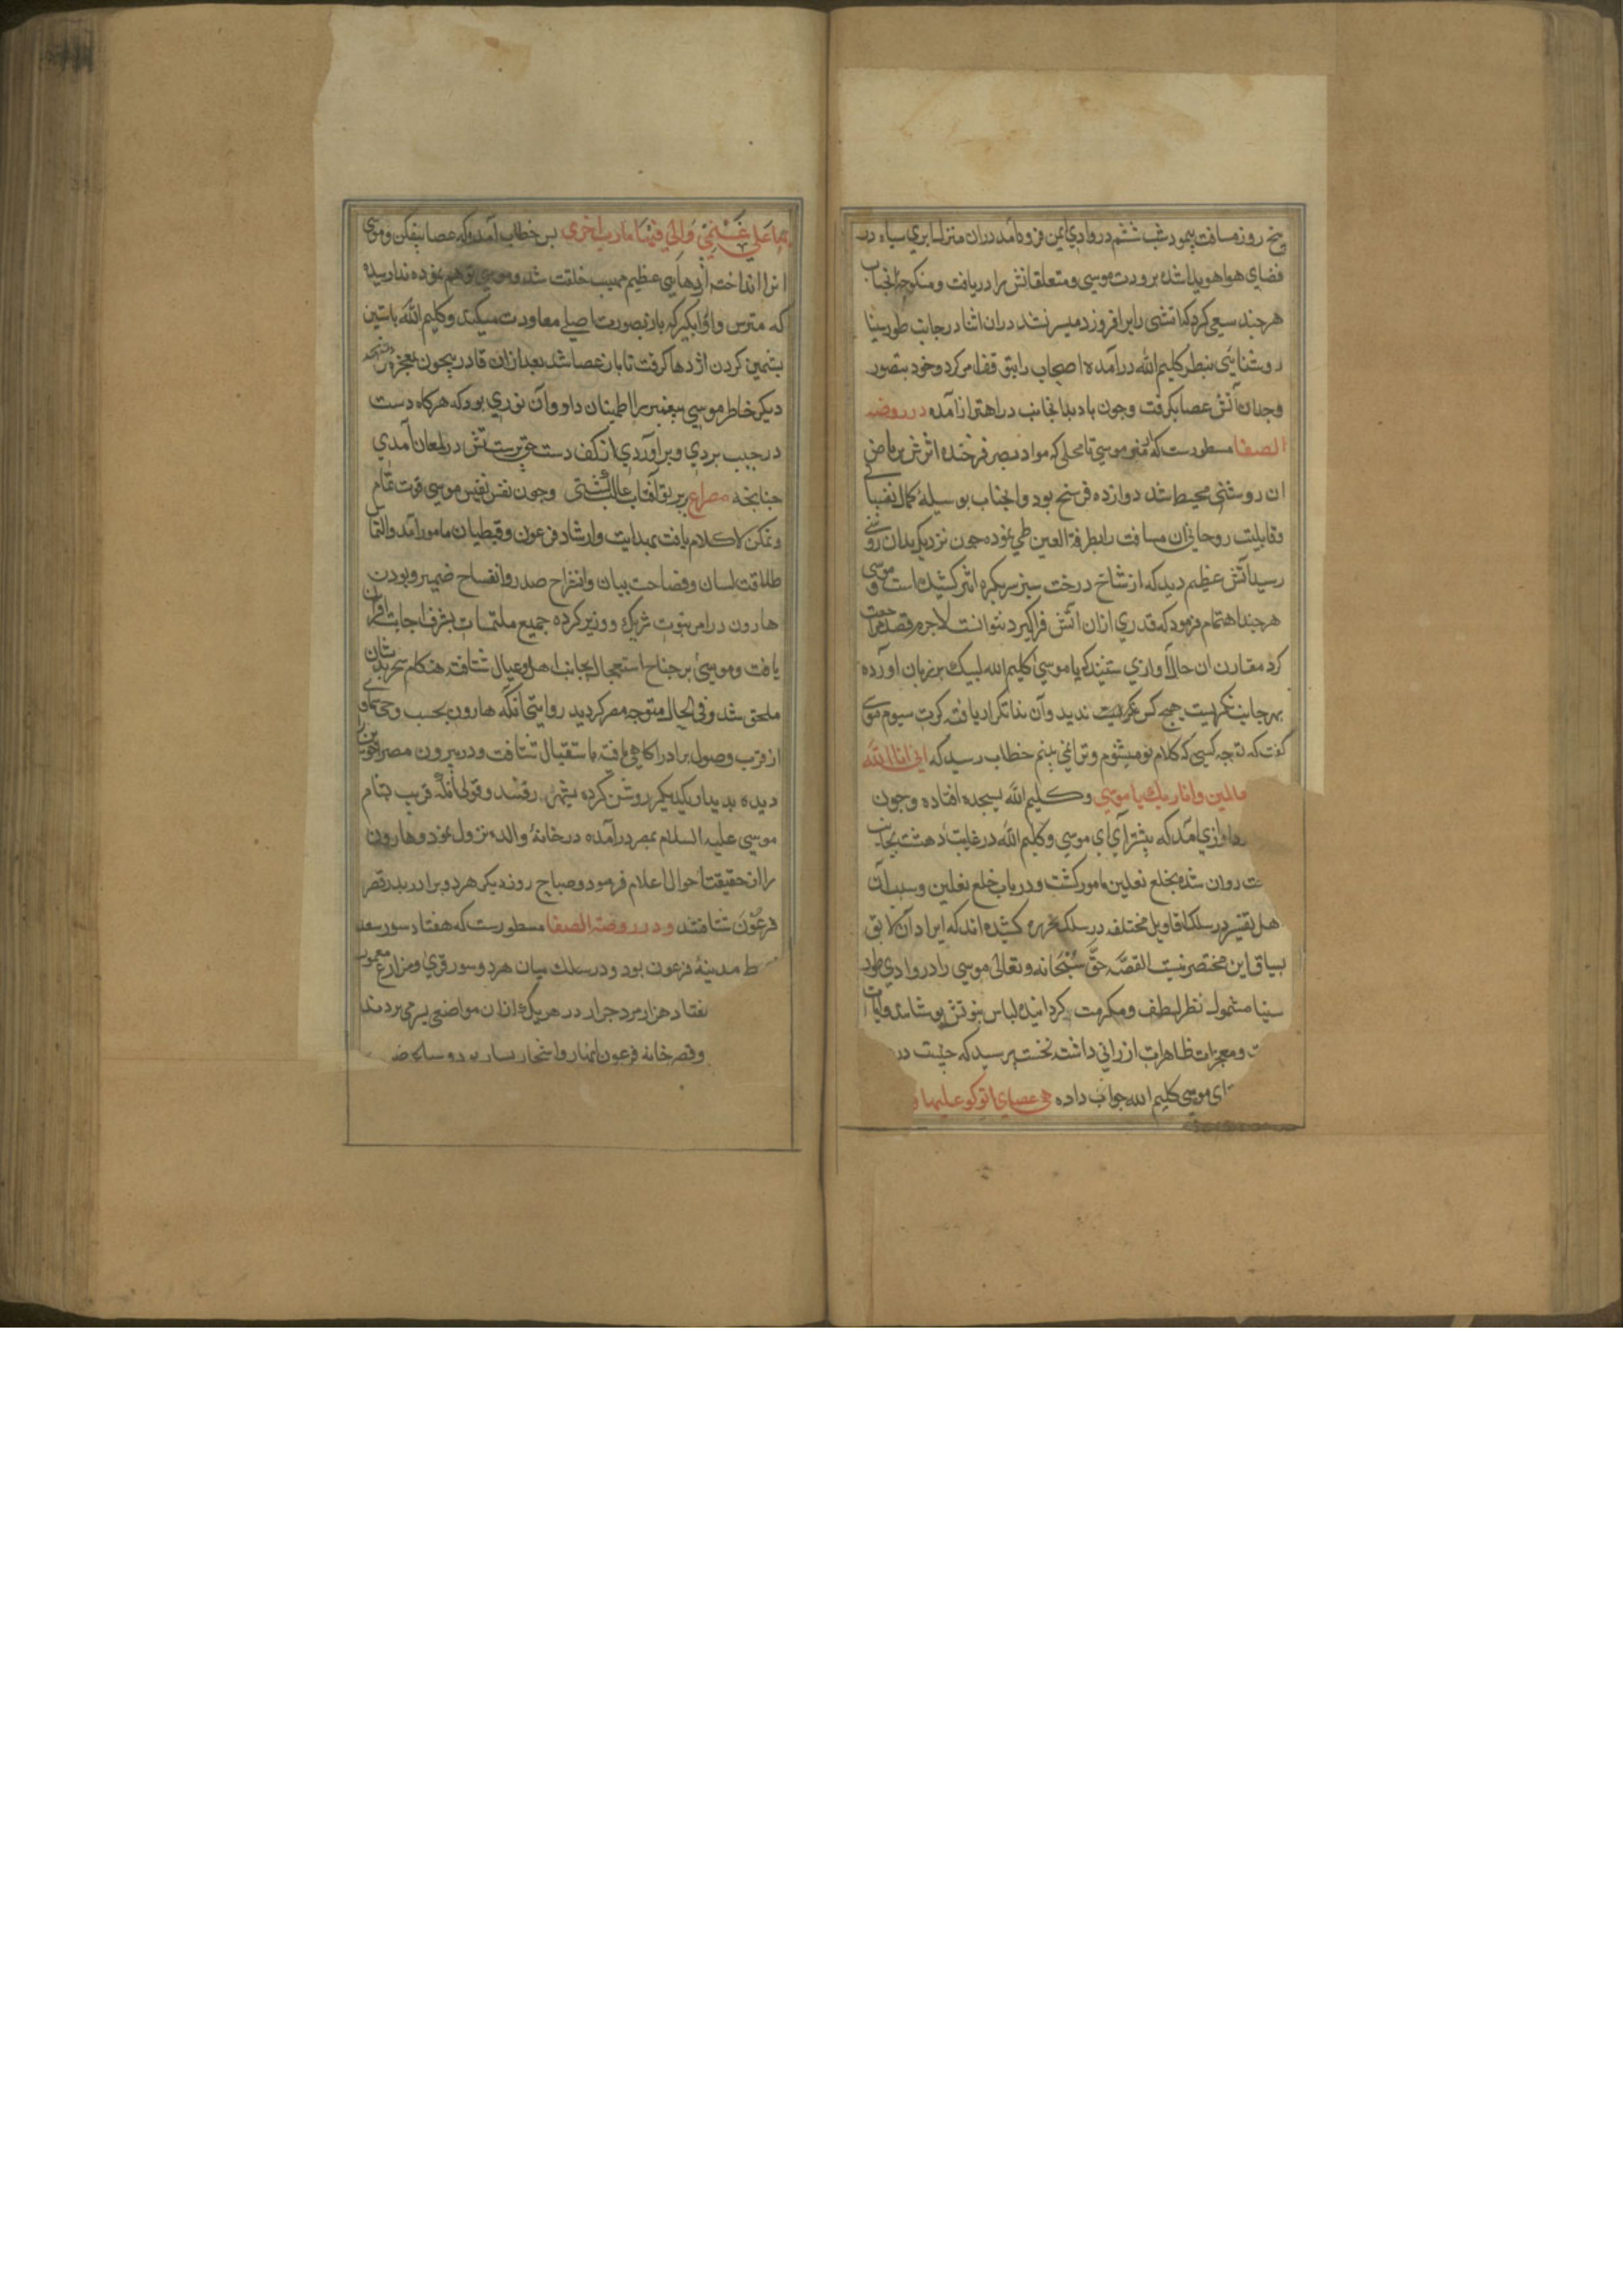 پنج روز مسافت پیمود شب ششم در وادی ایمن فرود آمد در آن منزل ابری سیاه در
فضای هوا هویدا شده برودت موسی و متعلقانش را دریافت و منکوحه آنجناب
هر چند سعی کرد که آتشی را بر افروزد میسر نشد در آن اثنا در جانب طور سینا
روشنایی بنظر کلیم الله در آمده اصحاب را بتوقف امر کرد و خود بتصور
وجدان آتش عصا بگرفت و چون باد بدانجانب در اهتزاز آمده در روضه
الصفا مسطورست که از موسی تا محلی که مواد بصر فرخنده اثرش بر
ان روشنی محیط شد دوازده فرسخ بود وانجناب بوسیله کمال
وقابلیت روحانی ان مسافت را بطرفة العین طی نموده چون نزدیک بدان روشنی
رسید آتش عظیم دید که از شاخ درخت سبز سر بکره اثیر کشیده است و موسی
هر چند اهتمام فرمود که قدری ازان آتش فرا گیرد نتوانست لاجرم قصد مراجعت
کرد مقارن ان حال آوازی شنید که یا موسی کلیم الله لبیک بر زبان آورده
بهر جانب نگریست هیچ کس ندید وآن ندا تکرار یافته کرت سیوم موسی
گفت که تو چه کسی که کلام تو میشنوم و ترا نمی بینم خطاب رسید که انی انا الله
العالمین وانا ربک یا موسی وکلیم الله بسجده افتاده وچون
آوازی آمد که پیشتر آی ای موسی وکلیم الله در غایت دهشت بجانب
روان شده بخلع نعلین مامور گشت ودر باب خلع نعلین وسبب آن
اهل تفسیر در سلک اقاویل مختلفه در سلک تحریر کشیده اند که ایراد آن لایق
بسیاق این مختصر نیست القصه حق سبحانه وتعالی موسی را در وادی طور
سینا مشمول نظر لطف ومکرمت گردانیده لباس نبوت پوشانید وآیات
ومعجزات ظاهرات ارزانی داشته نخست پرسید که چیست در
ای موسی کلیم الله جواب داده هی عصای اتوکو علیها و
بها علی غنمی ولی فیها مارب اخری پس خطاب آمد که عصا بیفکن وموسی
انرا انداخته اژدهایی عظیم مهیب خلقت شد وموسی توهم نموده ندا رسید
که مترس واورا بگیر که باز بصورت اصلی معاودت میکند وکلیم الله باستین
کردن اژدها گرفت تا باز عصا شد بعد ازان قادر بیچون معجزه
دیگر خاطر موسی پیغمبر را اطمینان داد وآن نوری بود که هر گاه دست
در جیب بردی وبر آوردی از کف دست حق پرستش در لمعان آمدی
چنانچه مصراع بر برتو آفتاب وچون نفس نفیس موسی قوت تمام
وتمکن لا کلام یافت بهدایت وارشاد فرعون وقبطیان مامور آمد والتماس
طلاقت لسان وفصاحت بیان وانشراح صدر وانفساح ضمیر وبودن
هارون در امر نبوت شریک ووزیر کرده جمیع ملتمسات بشرف اجابت
یافت وموسی بر جناح استعجال بجانب اهل وعیال شتافته هنگام سحر بدیشان
ملحق شد وفی الحال متوجه مصر گردید روایتی آنکه هارون بحسب وحی سماوی
از قرب وصول برادر آگاهی یافته باستقبال شتافت ودر بیرون مصر
دیده بدیدار یکدیگر روشن کرده بشهر رفتند وقولی آنکه قریب بشام
موسی علیه السلام بمصر در آمده در خانه والده نزول نمود وهارون
را از حقیقت احوال اعلام فرمود وصباح روز دیگر هر دو برادر بدر قصر
فرعون شتافتند ودر روضة الصفا مسطورست که هفتاد سور
مدینه فرعون بود ودر سلک میان هر دو سور قری ومزارع معمور
هفتاد هزار مرد جرار در هر یک ازان مواضع بسر می بردند
وقصر خانه فرعون انهار واشجار بسیار بود